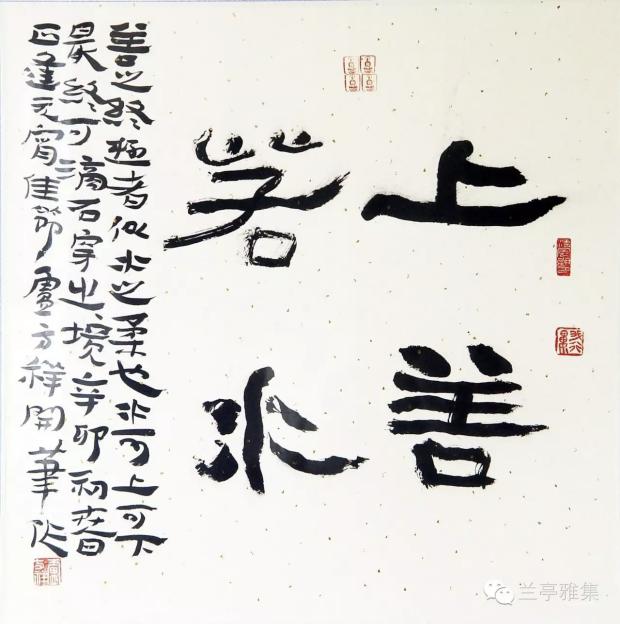 上善
若水
善之終極者似水之柔也水可上可下
最終可滴石穿之境辛卯初春日
正逢元宵佳節盧方祥開筆作
兰亭雅集